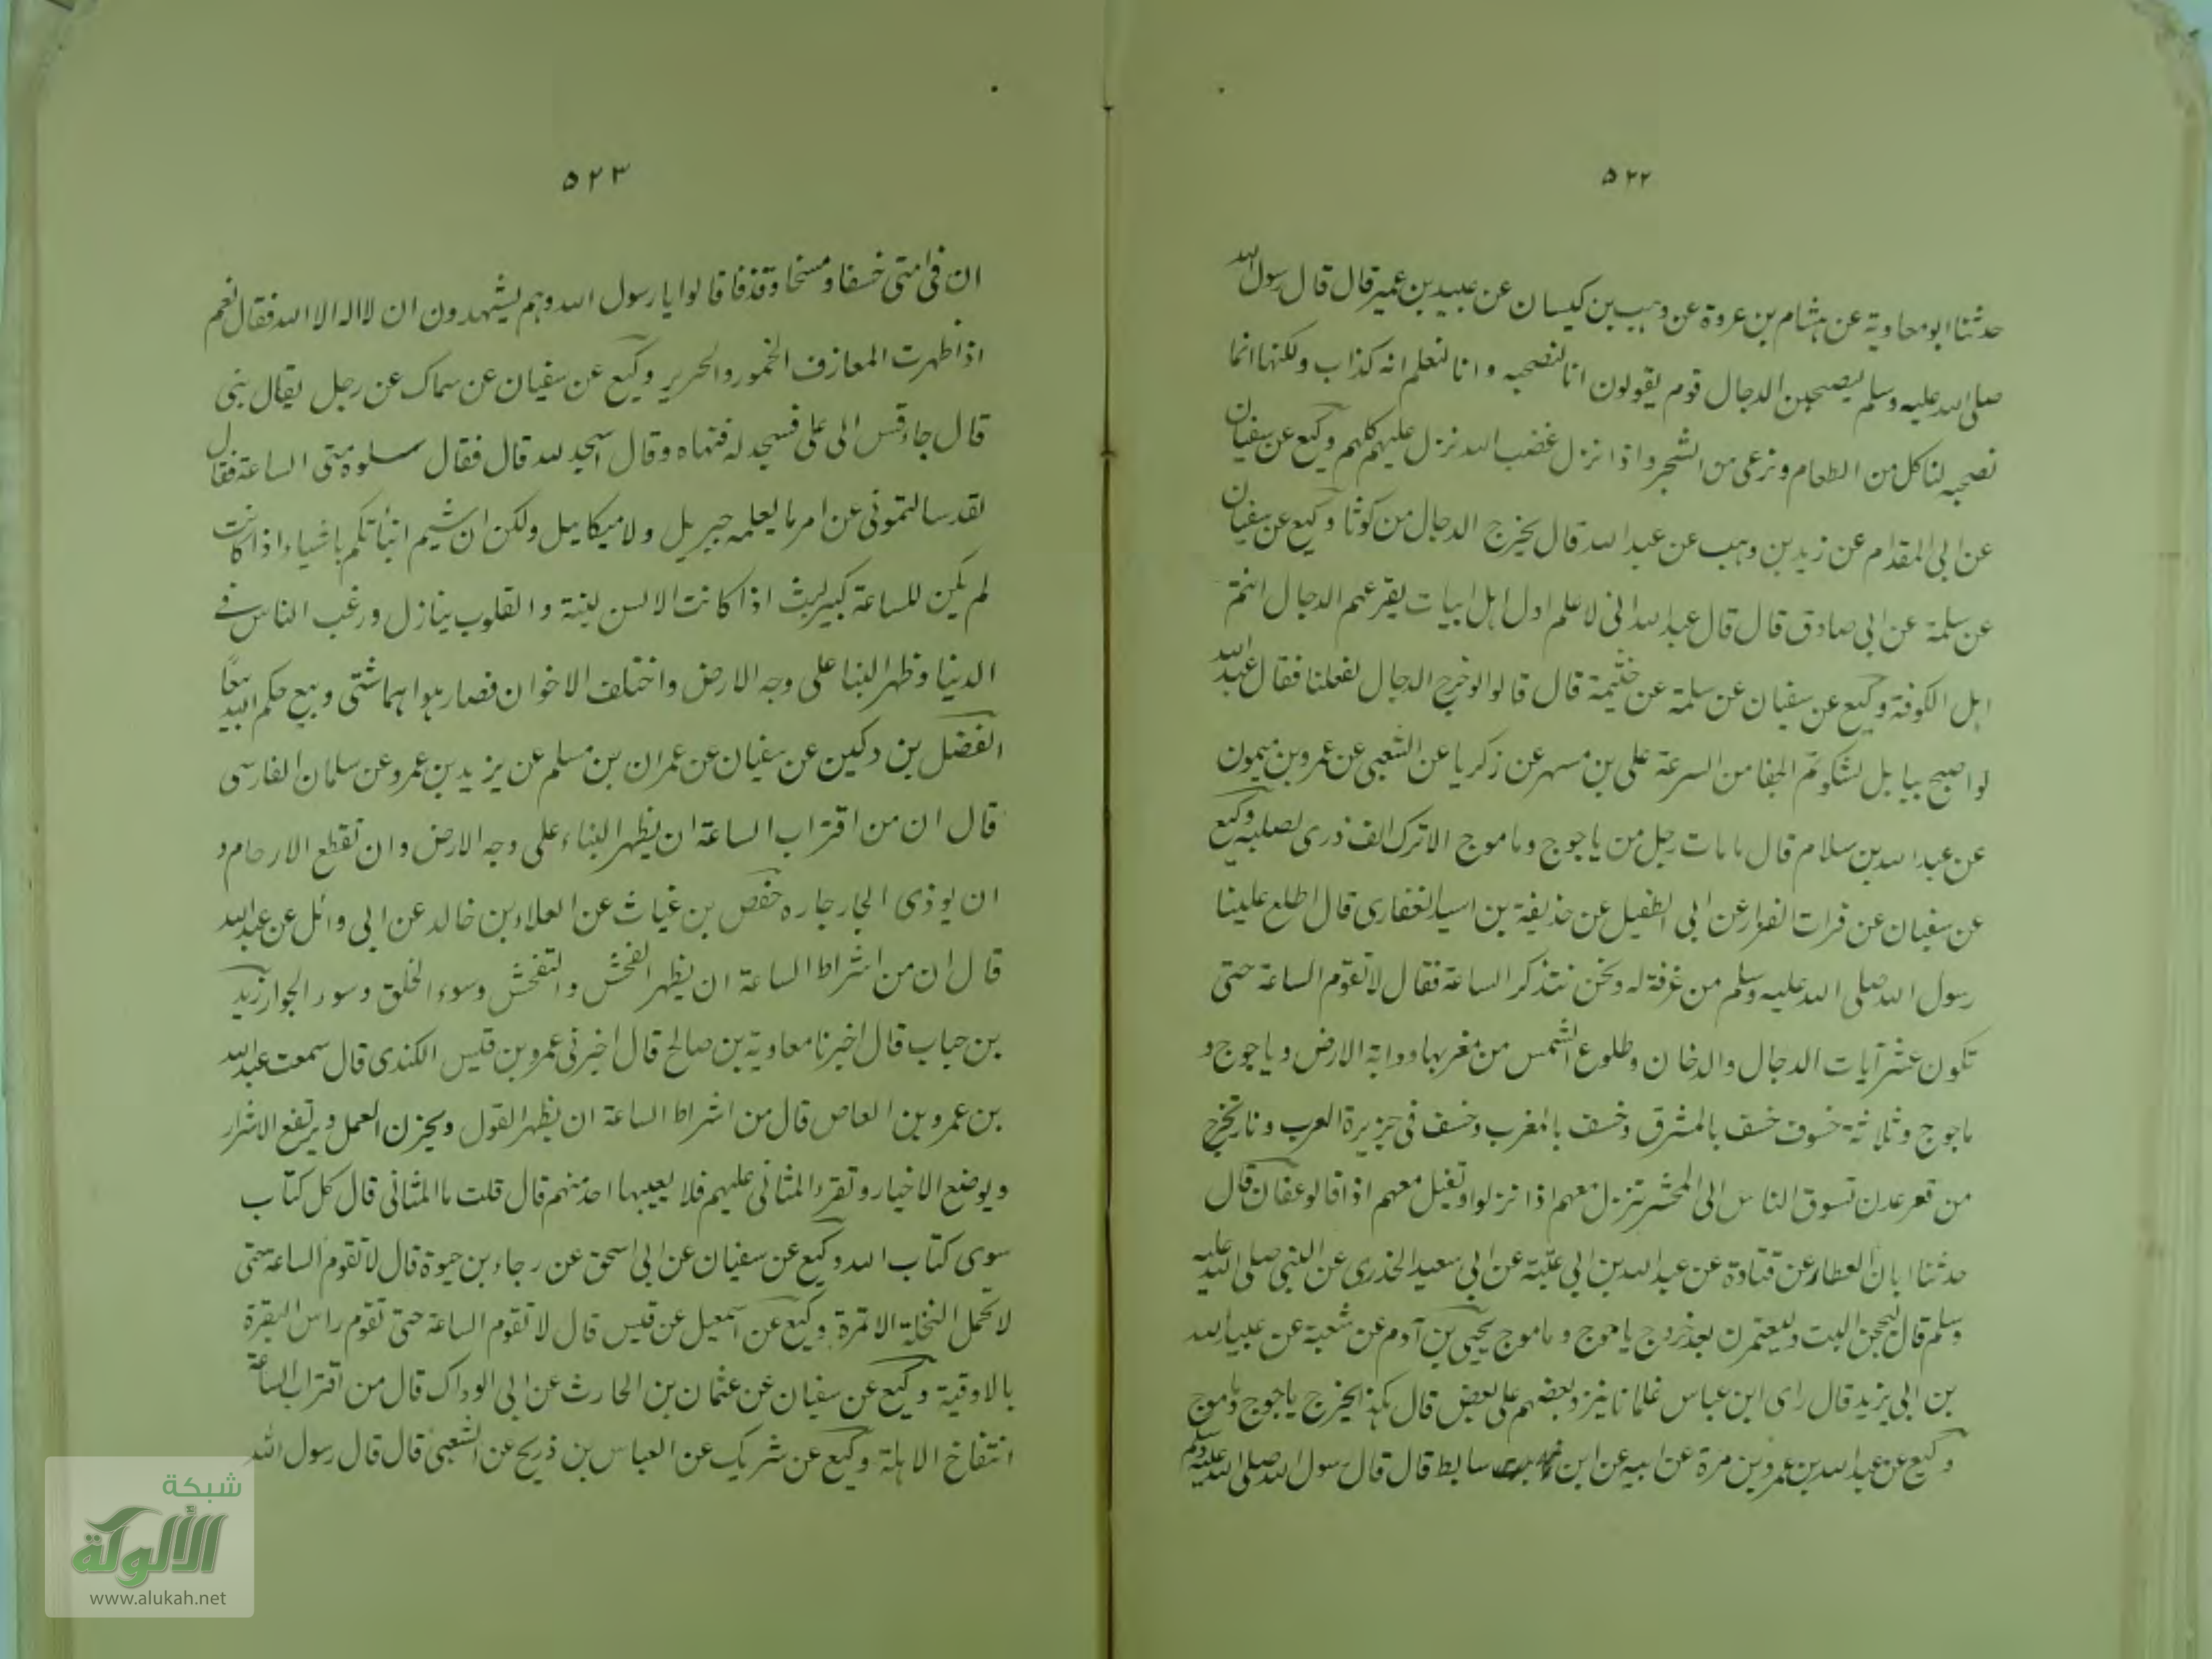 ٥٢٢
حدثنا ابو معاوية عن هشام بن عروة عن وهب بن كيسان عن عبيد بن عمير قال قال رسول الله
صلى الله عليه وسلم ليصحبن الدجال قوم يقولون انا لنصحبه وانا لنعلم انه كذاب ولكنها انما
نصحبه لناكل من الطعام ونرعى من الشجر واذا نزل غضب الله نزل عليهم كلهم وكيع عن سفيان
عن ابى المقدام عن زيد بن وهب عن عبد الله قال يخرج الدجال من كوثا وكيع عن سفيان
عن سلمة عن ابى صادق قال قال عبد الله انى لاعلم اول اهل ابيات يقرعهم الدجال انتم
اهل الكوفة وكيع عن سفيان عن سلمة عن خثيمة قال قالوا لو خرج الدجال لفعلنا فقال عبد الله
لو اصبح ببابل لشكوتم الجفا من السرعة على بن مسهر عن زكريا عن الشعبى عن عمرو بن ميمون
عن عبد الله بن سلام قال ما مات رجل من ياجوج وماموج الا ترك الف ذرى لصلبه وكيع
عن سفيان عن فرات الفزار عن ابى الطفيل عن حذيفة بن اسيد الغفارى قال اطلع علينا
رسول الله صلى الله عليه وسلم من غرفة له ونحن نتذكر الساعة فقال لا تقوم الساعة حتى
تكون عشر آيات الدجال والدخان وطلوع الشمس من مغربها ودابة الارض وياجوج و
ماجوج وثلاثة خسوف خسف بالمشرق وخسف بالمغرب وخسف فى جزيرة العرب ونار تخرج
من قعر عدن تسوق الناس الى المحشر تنزل معهم اذا نزلوا وتقيل معهم اذا قالو عفان قال
حدثنا ابان العطار عن قتادة عن عبد الله بن ابى عتبة عن ابى سعيد الخدرى عن النبى صلى الله عليه
وسلم قال ليحجن البت وليعتمرن بعد خروج ياجوج وماموج يحيى بن آدم عن شعبة عن عبيد الله
بن ابى يزيد قال راى ابن عباس غلمانا ينزو بعضهم على بعض قال هكذا يخرج ياجوج وماموج
وكيع عن عبد الله بن عمرو بن مرة عن ابيه عن ابن سابط قال قال رسول الله صلى الله عليه وسلم
٥٢٣
ان فى امتى خسفا ومسخا وقذفا قالوا يا رسول الله وهم يشهدون ان لا اله الا الله فقال نعم
اذا ظهرت المعازف الخمور والحرير وكيع عن سفيان عن سماك عن رجل يقال بنى
قال جاء قس الى على فسجد له فنهاه وقال اسجد لله قال فقال سلوه متى الساعة فقال
لقد سالتمونى عن امر ما يعلمه جبريل ولا ميكايل ولكن ان شيم انبأتكم باشياء اذا كانت
لم يكن للساعة كبير لبث اذا كانت الالسن لينة والقلوب ينازل ورغب الناس فى
الدنيا وظهر البنا على وجه الارض واختلف الاخوان فصار هوا هما شتى وبيع حكم الله بيعا
الفضل بن دكين عن سفيان عن عمران بن مسلم عن يزيد بن عمرو عن سلمان الفارسى
قال ان من اقتراب الساعة ان يظهر البناء على وجه الارض وان تقطع الارحام و
ان يوذى الجار جاره حفص بن غياث عن العلاء بن خالد عن ابى وائل عن عبد الله
قال ان من اشراط الساعة ان يظهر الفحش والتفحش وسوء الخلق وسوء الجوار زيد
بن حباب قال اخبرنا معاوية بن صالح قال اخبرنى عمرو بن قيس الكندى قال سمعت عبد الله
بن عمرو بن العاص قال من اشراط الساعة ان يظهر القول ويخزن العمل ويرتفع الاشرار
ويوضع الاخيار وتقرء المثانى عليهم فلا يعيبها احد منهم قال قلت ما المثانى قال كل كتاب
سوى كتاب الله وكيع عن سفيان عن ابى اسحق عن رجاء بن حيوة قال لا تقوم الساعة حتى
لا تحمل النخلة الا تمرة وكيع عن اسمعيل عن قيس قال لا تقوم الساعة حتى تقوم راس البقرة
بالاوقية وكيع عن سفيان عن عثمان بن الحارث عن ابى الوداك قال من اقتراب الساعة
انتفاخ الاهلة وكيع عن شريك عن العباس بن ذريح عن الشعبى قال قال رسول الله
شبكة
الألوكة
www.alukah.net